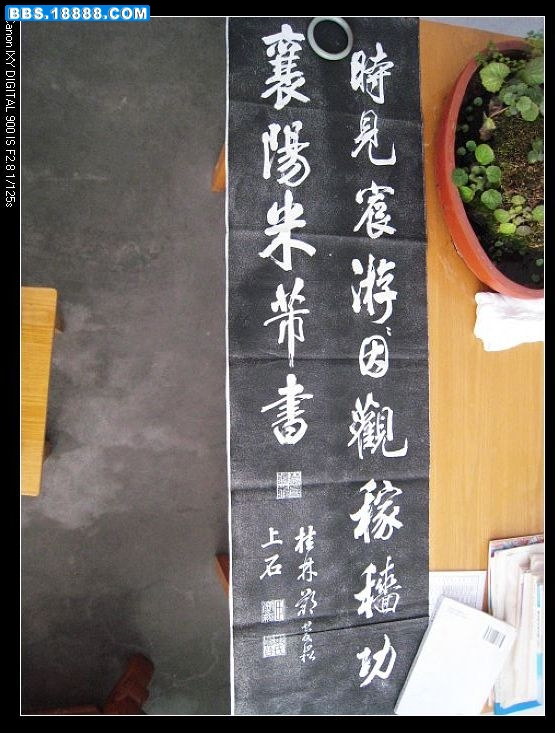 BBS.18888.COM
Canon IXY DIGITAL 900 IS F2.8 1/125s
時見宸游〻因觀稼穡功
襄陽米芾書
桂林
上石